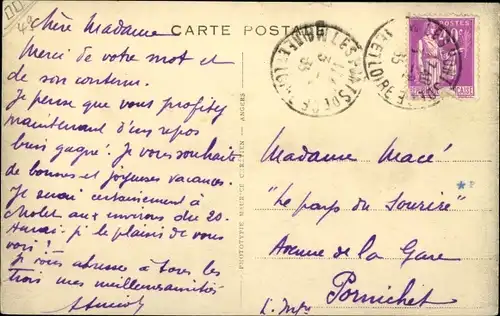 CARTE POSTALE
Chère Madame
Merci de votre mot et
de son contenu.
Je pense que vous profitez
maintenant d'un repos
bien gagné. Je vous souhaite
de bonnes et joyeuses vacances.
Je serai certainement à
aux environs du 20.
Aurai-je le plaisir de vous
voir?
Je vous adresse à tous les
trois mes meilleures amitiés
PHOTOTYPIE ANGERS
LES PONTS DE CE
MAINE ET LOIRE
35
POSTES
Madame Macé
"Le pays du Sourire"
Avenue de la Gare
Pornichet
L. Infre